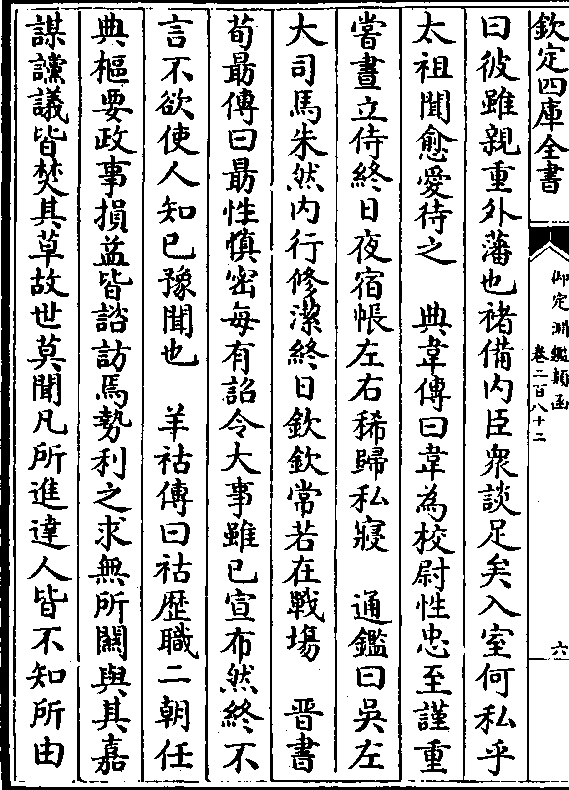 欽定四庫全書
御定淵鑑類函
卷二百八十二
六
曰彼雖親重外藩也褚備内臣衆談足矣入室何私乎
太祖聞愈愛待之　典韋傳曰韋為校尉性忠至謹重
嘗晝立侍終日夜宿帳左右稀歸私寢　通鑑曰吳左
大司馬朱然内行修潔終日欽欽常若在戰場　晉書
荀朂傳曰朂性慎密每有詔令大事雖已宣布然終不
言不欲使人知已豫聞也　羊祜傳曰祜歷職二朝任
典樞要政事損益皆諮訪焉勢利之求無所關與其嘉
謀讜議皆焚其草故世莫聞凡所進達人皆不知所由